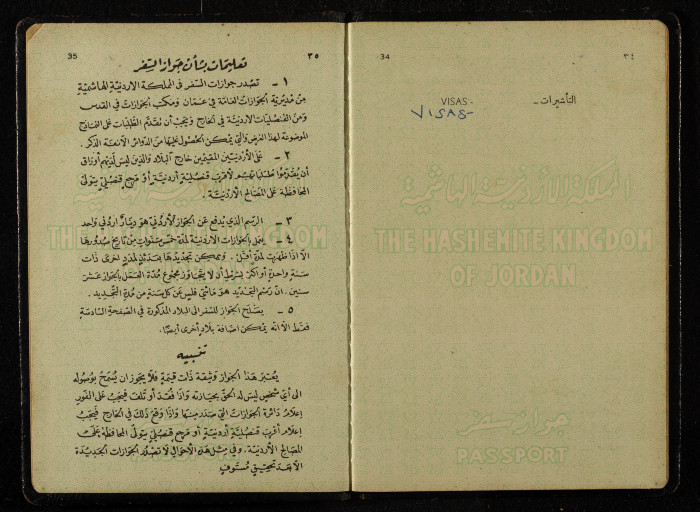 35
٣٥
تعليمات بشأن جواز السفر
١ - تصدر جوازات السفر في المملكة الاردنية الهاشمية
من مديرية الجوازات العامة في عمان ومكتب الجوازات في القدس
ومن القنصليات الاردنية في الخارج ويجب أن تقدم الطلبات على النماذج
الموضوعة لهذا الغرض والتي يمكن الحصول عليها من الدوائر الآنفة الذكر.
٢ - على الأردنيين المقيمين خارج البلاد والذين ليس لديهم أوراق
أن يقدموا طلباتهم لأقرب قنصلية أردنية أو مرجع قنصلي يتولى
المحافظة على المصالح الأردنية.
٣ - الرسم الذي يدفع عن الجواز الأردني هو دينار اردني واحد
٤ - يعمل بالجوازات الاردنية لمدة خمس سنوات من تاريخ صدورها
الا اذا أعطيت لمدة أقل. ويمكن تجديدها بعدئذ لمدد اخرى ذات
سنة واحدة أو أكثر بشرط أن لا يتجاوز مجموع مدة العمل بالجواز عشر
سنين. ان رسم التجديد هو مائتي فلس عن كل سنة من مدة التجديد.
٥ - يصلح الجواز للسفر الى البلاد المذكورة في الصفحة السادسة
فقط الا انه يمكن اضافة بلاد أخرى أيضا.
تنبيه
يعتبر هذا الجواز وثيقة ذات قيمة فلا يجوز ان يسمح بوصوله
الى أي شخص ليس له الحق بحيازته واذا فقد أو تلف فيجب على الفور
إعلام دائرة الجوازات التي صدر منها واذا وقع ذلك في الخارج فيجب
إعلام أقرب قنصلية أردنية أو مرجع قنصلي يتولى المحافظة على
المصالح الأردنية. وفي مثل هذه الأحوال لا تصدر الجوازات الجديدة
الا بعد تحقيق مستوف
المملكة الأردنية الهاشمية
THE HASHEMITE KINGDOM
34
٣٤
VISAS -
التأشيرات -
VISAS-
المملكة الأردنية الهاشمية
THE HASHEMITE KINGDOM
OF JORDAN
جواز سفر
PASSPORT